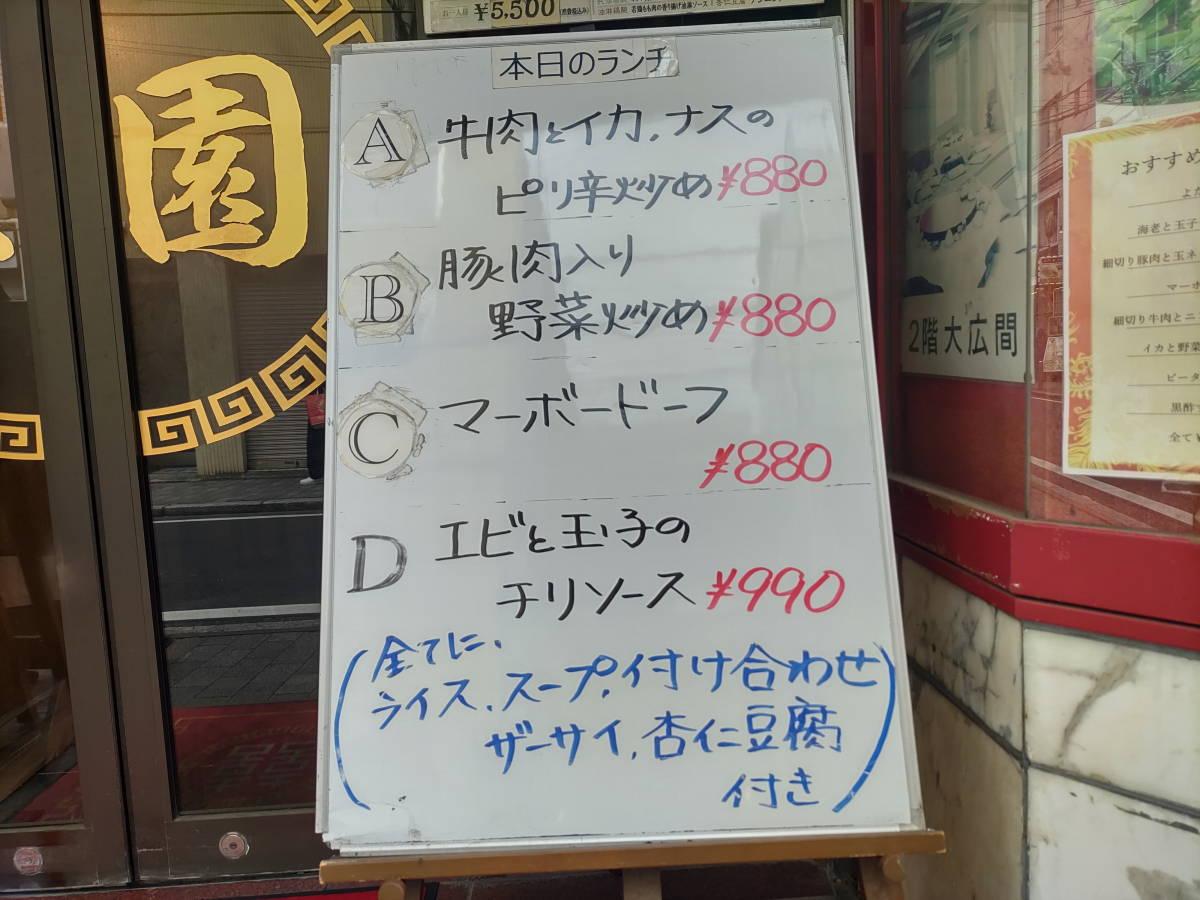 ¥5,500
本日のランチ
A 牛肉とイカ,ナスの
ピリ辛炒め ¥880
B 豚肉入り
野菜炒め ¥880
C マーボードーフ
¥880
D エビと玉子の
チリソース ¥990
(全てに、
ライス、スープ、付け合わせ
ザーサイ、杏仁豆腐
付き)
園
2階大広間
おすすめ
海老と玉子
細切り豚肉と玉ネ
マーボ
細切り牛肉とニ
イカと野菜
ピータ
黒酢
全て